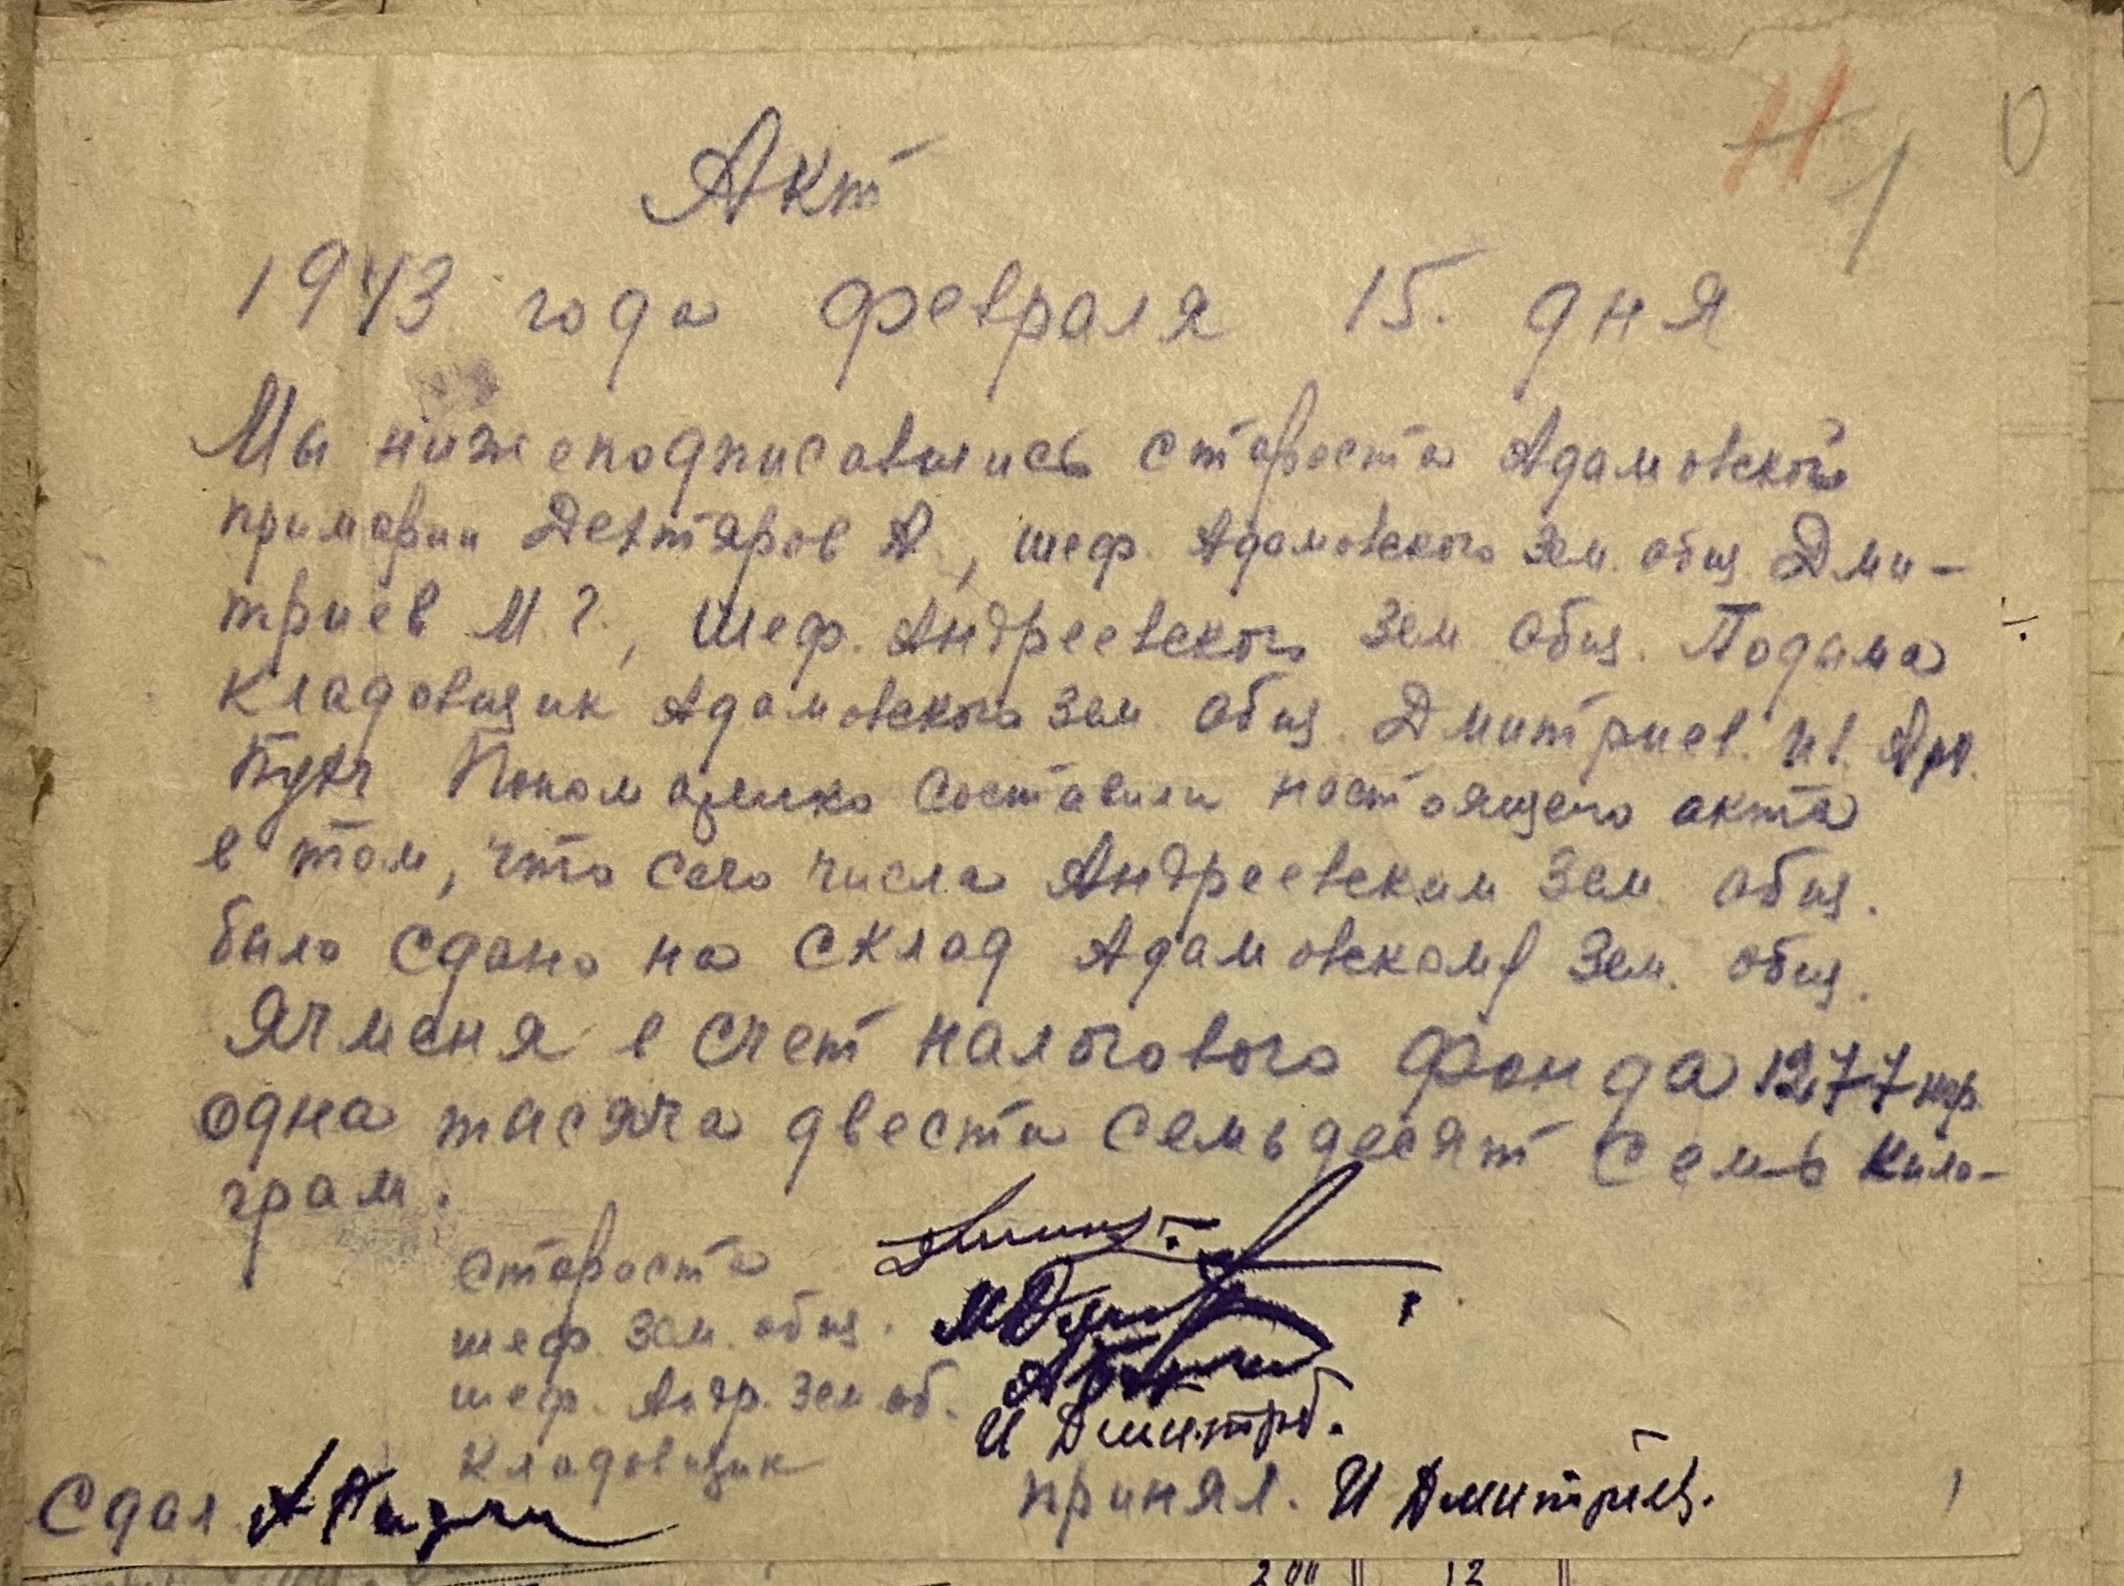 Акт
1943 года февраля 15. дня
Мы нижеподписавшись староста Адамовской
примарии Дехтяров А., шеф. Адамовского зем. общ. Дми-
триев М. Г., шеф. Андреевского зем. общ.
кладовщик Адамовского зем. общ. Дмитриев. И.
составили настоящего акта
в том, что сего числа Андреевским зем. общ.
было сдано на склад Адамовскому зем. общ.
Ячменя в счет налогового фонда 1277 кгр.
одна тисяча двести семьдесят семь кило-
грам.
староста
шеф. зем. общ.
шеф. Андр. зем об.
И Дмитр.
кладовщик
Сдал
принял. И Дмитриев.